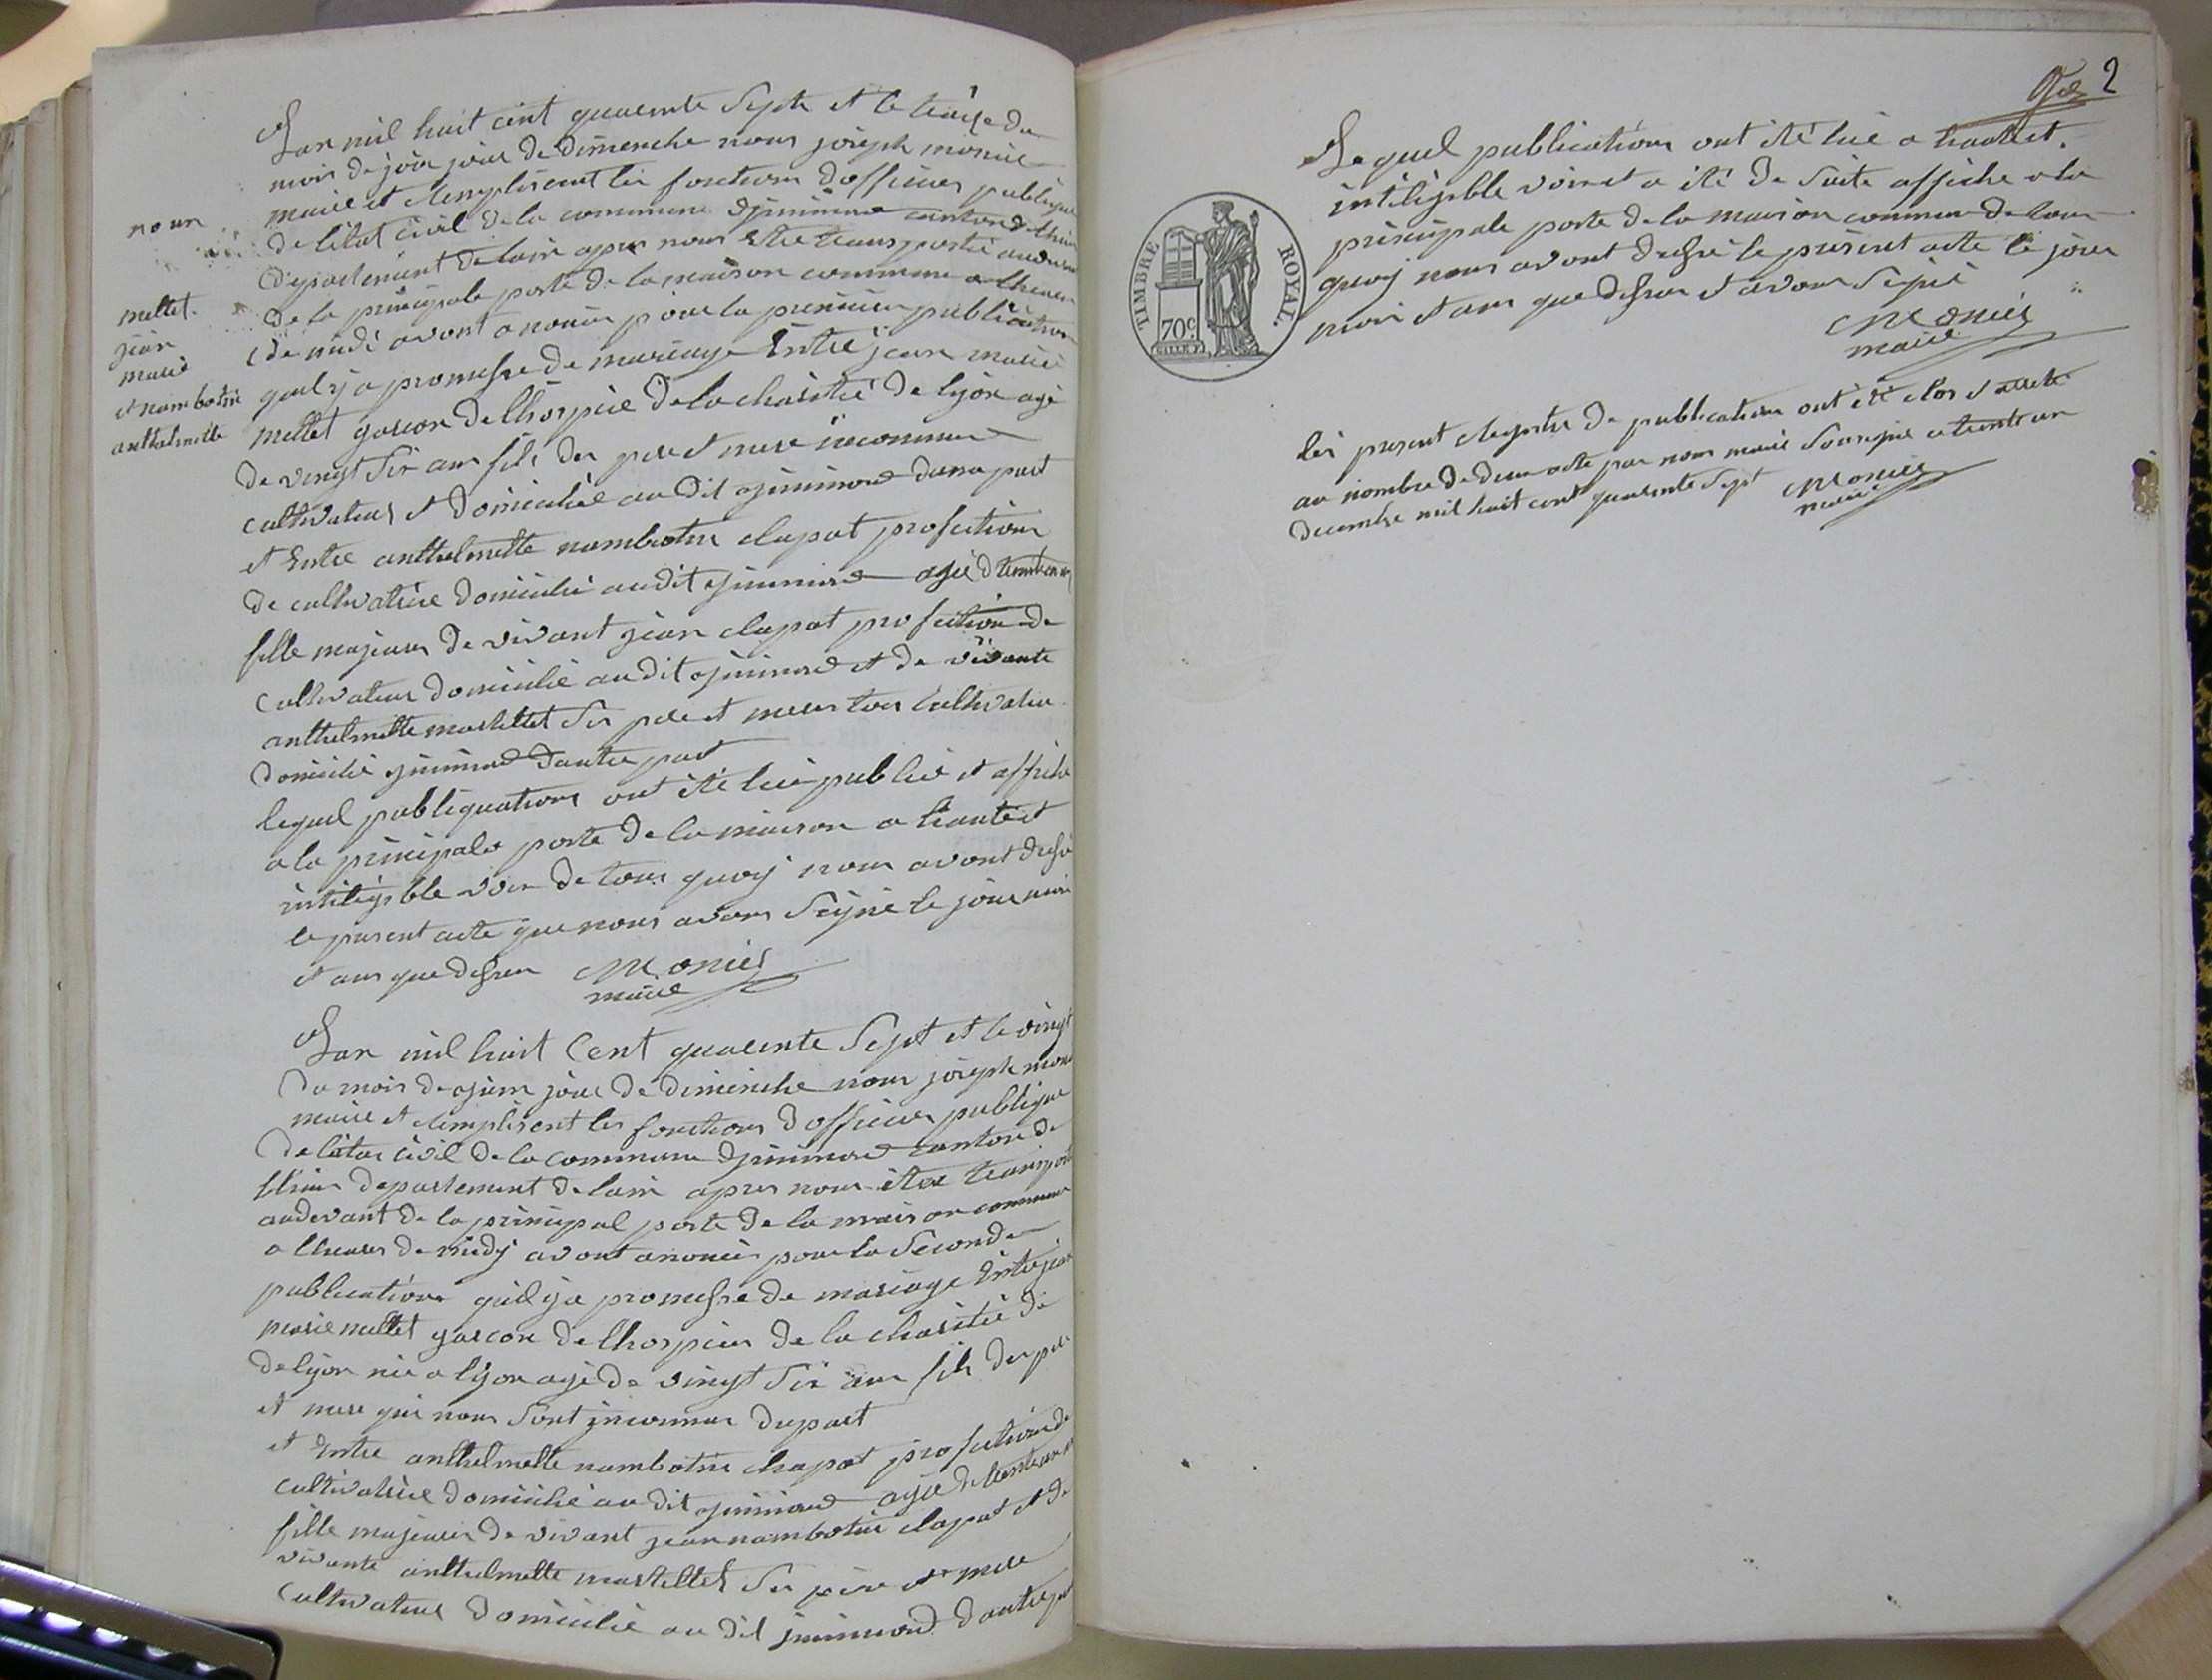 Lan mil huit cent quarente Sept et le treize du
mois de join jour de dimenche nous joseph monier
maire et remplisent les fonctions dofficier publique
de létat civil de la commune djnimond canton de lhuis
departement de lain apres nous etre transporté audevant
de la principale porte de la maison commune a lheure
de midi avont anoncer pour la premier publication
quil y a promesse de mariage Entre jean marie
mettet garcon de lhospice de la charitié de lyon agé
de vingt Six ans fils des pere et mere inconnu
cultivateur et domicilié au dit jnimond dune part
et Entre anthelmette nambotin clapat profection
de cultivatrice domicilié audit jnimond agée d trente un ans
fille majeure de vivant jean clapat profection de
cultivateur domicilié au dit jnimond et de vivante
anthelmette martellet Ses pere et mere tous cultivateur
domicilié jnimond dautre part
lequel publiquations ont été lue publié et affiché
a la principale porte de la maison a haute et
intiligible voix de tous quoy nous avont dressé
le present acte que nous avons Signé le jour mois
et ans que dessus Monier
maire
noun
mettet
jean
marie
et nambotin
anthelmette
Lan mil huit Cent quarente Sept et le vingt
du mois de juin jour de dimenche nous joseph monier
maire et remplisent les fonctions d officier publique
de létat civil de la commune djnimond canton de
lhuis departement de lain apres nous étre transporté
audevant de la principal porte de la maison commune
a lheure de midy avont anoncer pour la Seconde
publication quil y a promesse de mariage Entre jean
marie mettet garcon de lhospice de la charitié de
de lyon née a lyon agé de vingt Six ans fils des pere
et mere qui nous Sont inconnu dupart
et Entre anthelmette nambotin clapat profection de
cultivatrice domicilié au dit jnimond agée de trente un ans
fille majeure de vivant jean nambotin clapat et de
vivante anthelmette martellet Ses père et mere
cultivateur domicilié au dit jnimond dautre part
2
Le quel publications ont été lue a haute et
intiligible voix et a été de Suite affiche a la
principale porte de la maison commune de tous
quoy nous avont dressé le présent acte le jour
mois et ans que dessus et avons Signé
Monier
maire
TIMBRE ROYAL.
70c.
les present Registre de publication ont été clos et arreté
au nombre de deux acte par nous maire Soussigné a trente un
decembre mil huit cent quarente Sept Monier
maire